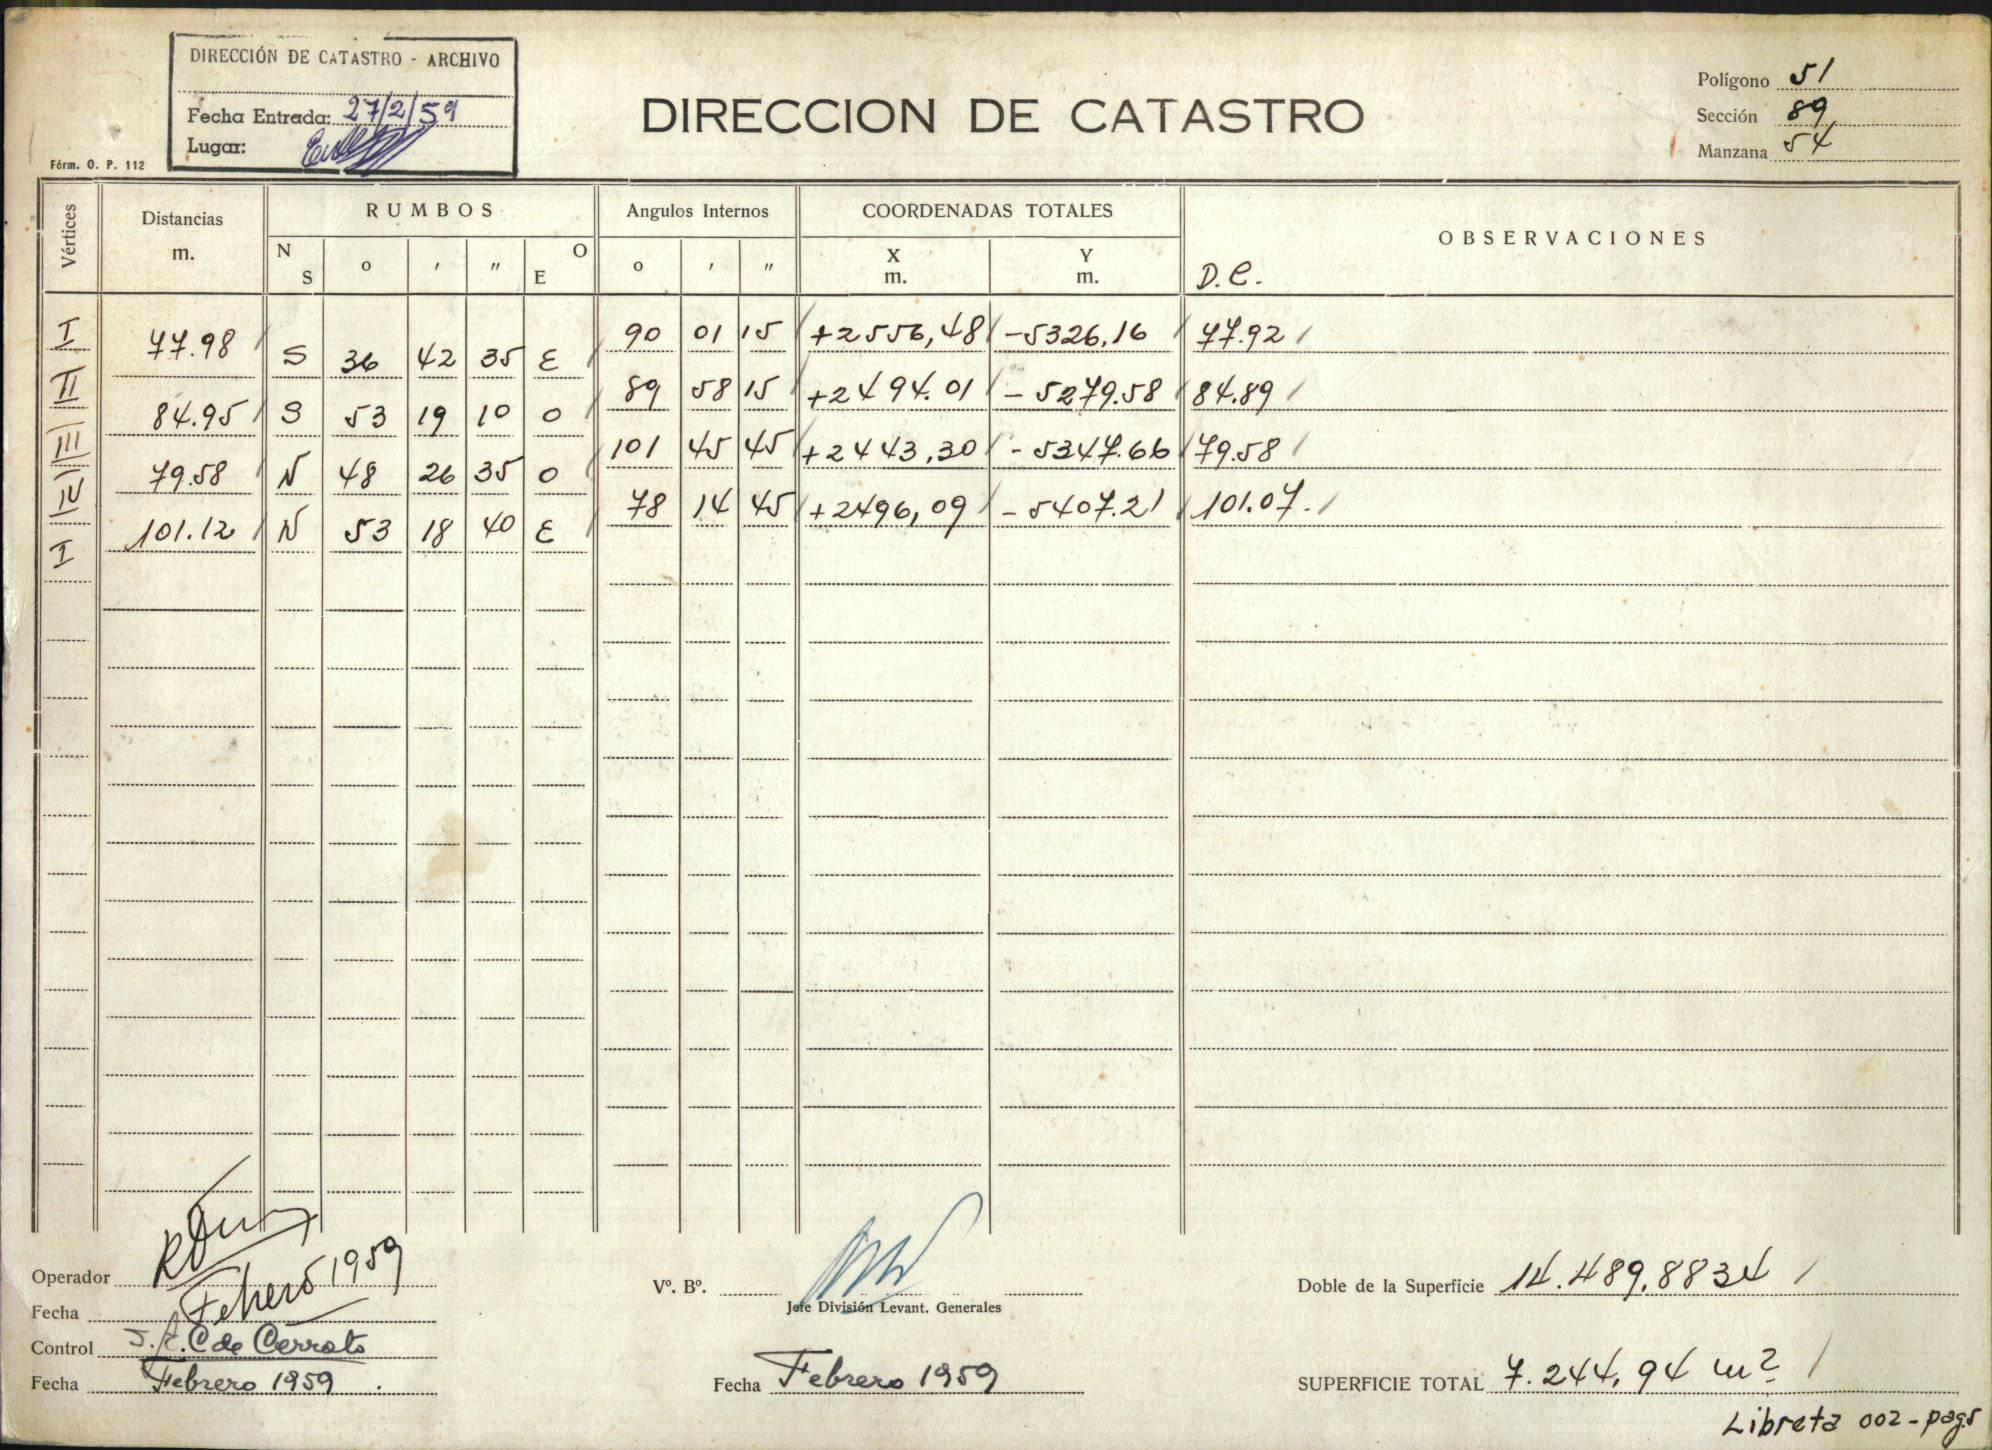 DIRECCIÓN DE CATASTRO - ARCHIVO
Fecha Entrada: 27/2/59
Lugar:
Fórm. O. P. 112
DIRECCION DE CATASTRO
Polígono 51
Sección 89
Manzana 54
Vértices Distancias m. RUMBOS Angulos Internos COORDENADAS TOTALES OBSERVACIONES
N S o ' " E O o ' " X m. Y m. D.C.
I 90 01 15 +2556,48 -5326,16 77.92
77.98 S 36 42 35 E
II 89 58 15 +2494.01 -5279.58 84.89
84.95 S 53 19 10 O
III 101 45 45 +2443,30 -5347.66 79.58
79.58 N 48 26 35 O
IV 78 14 45 +2496,09 -5407.21 101.07.
101.12 N 53 18 40 E
I
Operador
Fecha Febrero 1959
Control J.E.C de Cerrato
Fecha Febrero 1959.
Vº. Bº.
Jefe División Levant. Generales
Fecha Febrero 1959
Doble de la Superficie 14.489,8834
SUPERFICIE TOTAL 7.244,94 m2
Libreta 002-pag5